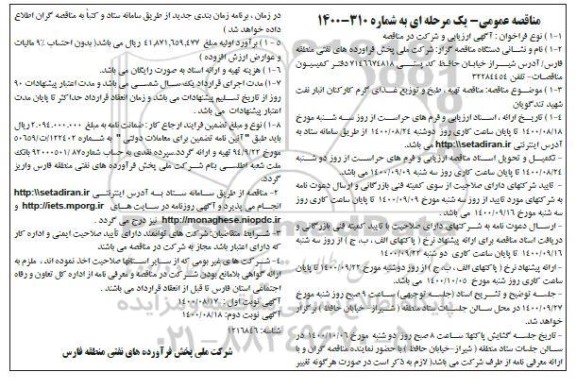 مناقصه عمومی- یک مرحله ای به شماره ۳۱۰-۱۴۰۰
۱-۱ نوع فراخوان: آگهی ارزیابی و شرکت در مناقصه
۱-۲ نام و نشانی دستگاه مناقصه گزار: شرکت ملی پخش فرآورده های نفتی منطقه
فارس/ آدرس شیراز خیابان حافظ کد پستی ۷۱۴۶۶۷۴۸۱۸ دفتر کمیسیون
مناقصات- تلفن ۳۲۲۸۴۴۵۴
۱-۳ موضوع مناقصه: مناقصه تهیه، طبخ و توزیع غذای گرم کارکنان انبار نفت
شهید تندگویان
۱-۴ تاریخ ارائه، اسناد ارزیابی و فرم های حراست از روز سه شنبه مورخ
۱۴۰۰/۰۸/۱۸ تا پایان ساعت کاری روز دوشنبه ۱۴۰۰/۰۸/۲۴ از طریق سامانه ستاد به
آدرس اینترنتی http:\\setadiran.ir می باشد.
- تکمیل و تحویل اسناد مناقصه ارزیابی و فرم های حراست از روز دو شنبه
۱۴۰۰/۰۸/۲۴ تا پایان ساعت کاری روز سه شنبه ۱۴۰۰/۰۹/۰۹ می باشد.
- تایید شرکتهای دارای صلاحیت از سوی کمیته فنی بازرگانی و ارسال دعوت نامه
به شرکتهای مورد تایید از روز سه شنبه مورخ ۱۴۰۰/۰۹/۰۹ تا پایان ساعت کاری روز
سه شنبه مورخ ۱۴۰۰/۰۹/۱۶ می باشد.
- ارسال دعوت نامه به شرکتهای دارای صلاحیت با تایید کمیته فنی بازرگانی و
دریافت اسناد مناقصه برای ارائه پیشنهاد نرخ (پاکتهای الف، ب، ج) از روز سه شنبه
۱۴۰۰/۰۹/۱۶ تا پایان ساعت کاری روز دوشنبه ۱۴۰۰/۰۹/۲۲
- ارائه پیشنهاد نرخ (پاکتهای الف، ب، ج) از روز دوشنبه مورخ ۱۴۰۰/۰۹/۲۲ تا پایان
ساعت کاری روز یکشنبه مورخ ۱۴۰۰/۱۰/۰۵ می باشد.
- جلسه توضیح و تشریح اسناد (جلسه توجیهی) ساعت ۹ صبح روز شنبه مورخ
۱۴۰۰/۰۹/۲۷ در محل سالن جلسات ستاد منطقه (شیراز- خیابان حافظ) برگزار
خواهد شد.
- تاریخ جلسه گشایش پاکتها: ساعت ۸ صبح روز دوشنبه مورخ ۱۴۰۰/۱۰/۰۶ در
سالن جلسات ستاد منطقه (شیراز- خیابان حافظ) با حضور نماینده مناقصه گران و با
ارائه معرفی نامه از طرف شرکت می باشد( لازم به ذکر است در صورت هرگونه تغییر
در زمان، برنامه زمان بندی جدید از طریق سامانه ستاد و کتباً به مناقصه گران اطلاع
داده خواهد شد)
۱-۵ برآورد اولیه مبلغ ۴۱،۸۷۱،۶۵۹،۴۷۷ ریال می باشد( بدون احتساب ۹٪ مالیات
و عوارض ارزش افزوده)
۱-۶ هزینه تهیه و ارائه اسناد به صورت رایگان می باشد.
۱-۷ مدت اجرای قرارداد یک سال شمسی می باشد و مدت اعتبار پیشنهادات ۹۰
روز از تاریخ تسلیم پیشنهادات می باشد و زمان انعقاد قرارداد حداکثر تا پایان مدت
اعتبار پیشنهادات می باشد.
۱-۸ نوع و مبلغ تضمین فرایند ارجاع کار: ضمانت نامه به مبلغ ۲،۰۹۴،۰۰۰،۰۰۰ ریال
باید طبق "آیین نامه تضمین برای معاملات دولتی" به شماره ۱۲۳۴۰۲/ت۵۰۶۵۹
مورخ ۹۴/۹/۲۲ تهیه و ارائه گردد.
ملت شعبه اطلسی بنام شرکت ملی پخش فرآورده های نفتی منطقه فارس واریز
گردد.
۲- مناقصه از طریق سامانه ستاد به آدرس اینترنتی http:\\setadiran.ir
انجام می پذیرد و آگهی روزنامه در سایت های http:\\iets.mporg.ir و
http:\\monaghese.niopdc.ir نیز درج می گردد.
۳- شرایط متقاضیان: شرکت های توانمند دارای تایید صلاحیت ایمنی و اداره کار
که دارای اعتبار باشد مجاز به شرکت در مناقصه می باشند
۴- شرکت های غیر بومی که از سایر استانها صلاحیت اخذ نموده اند، ملزم به
ارائه گواهی بلامانع بودن شرکت در مناقصه و معرفی نامه از اداره کل تعاون و رفاه
اجتماعی استان فارس تا قبل از انعقاد قرارداد می باشند.
آگهی نوبت اول: ۱۴۰۰/۰۸/۱۷
آگهی نوبت دوم: ۱۴۰۰/۰۸/۱۸
شناسه: ۱۲۱۶۸۴۶
شرکت ملی پخش فرآورده های نفتی منطقه فارس